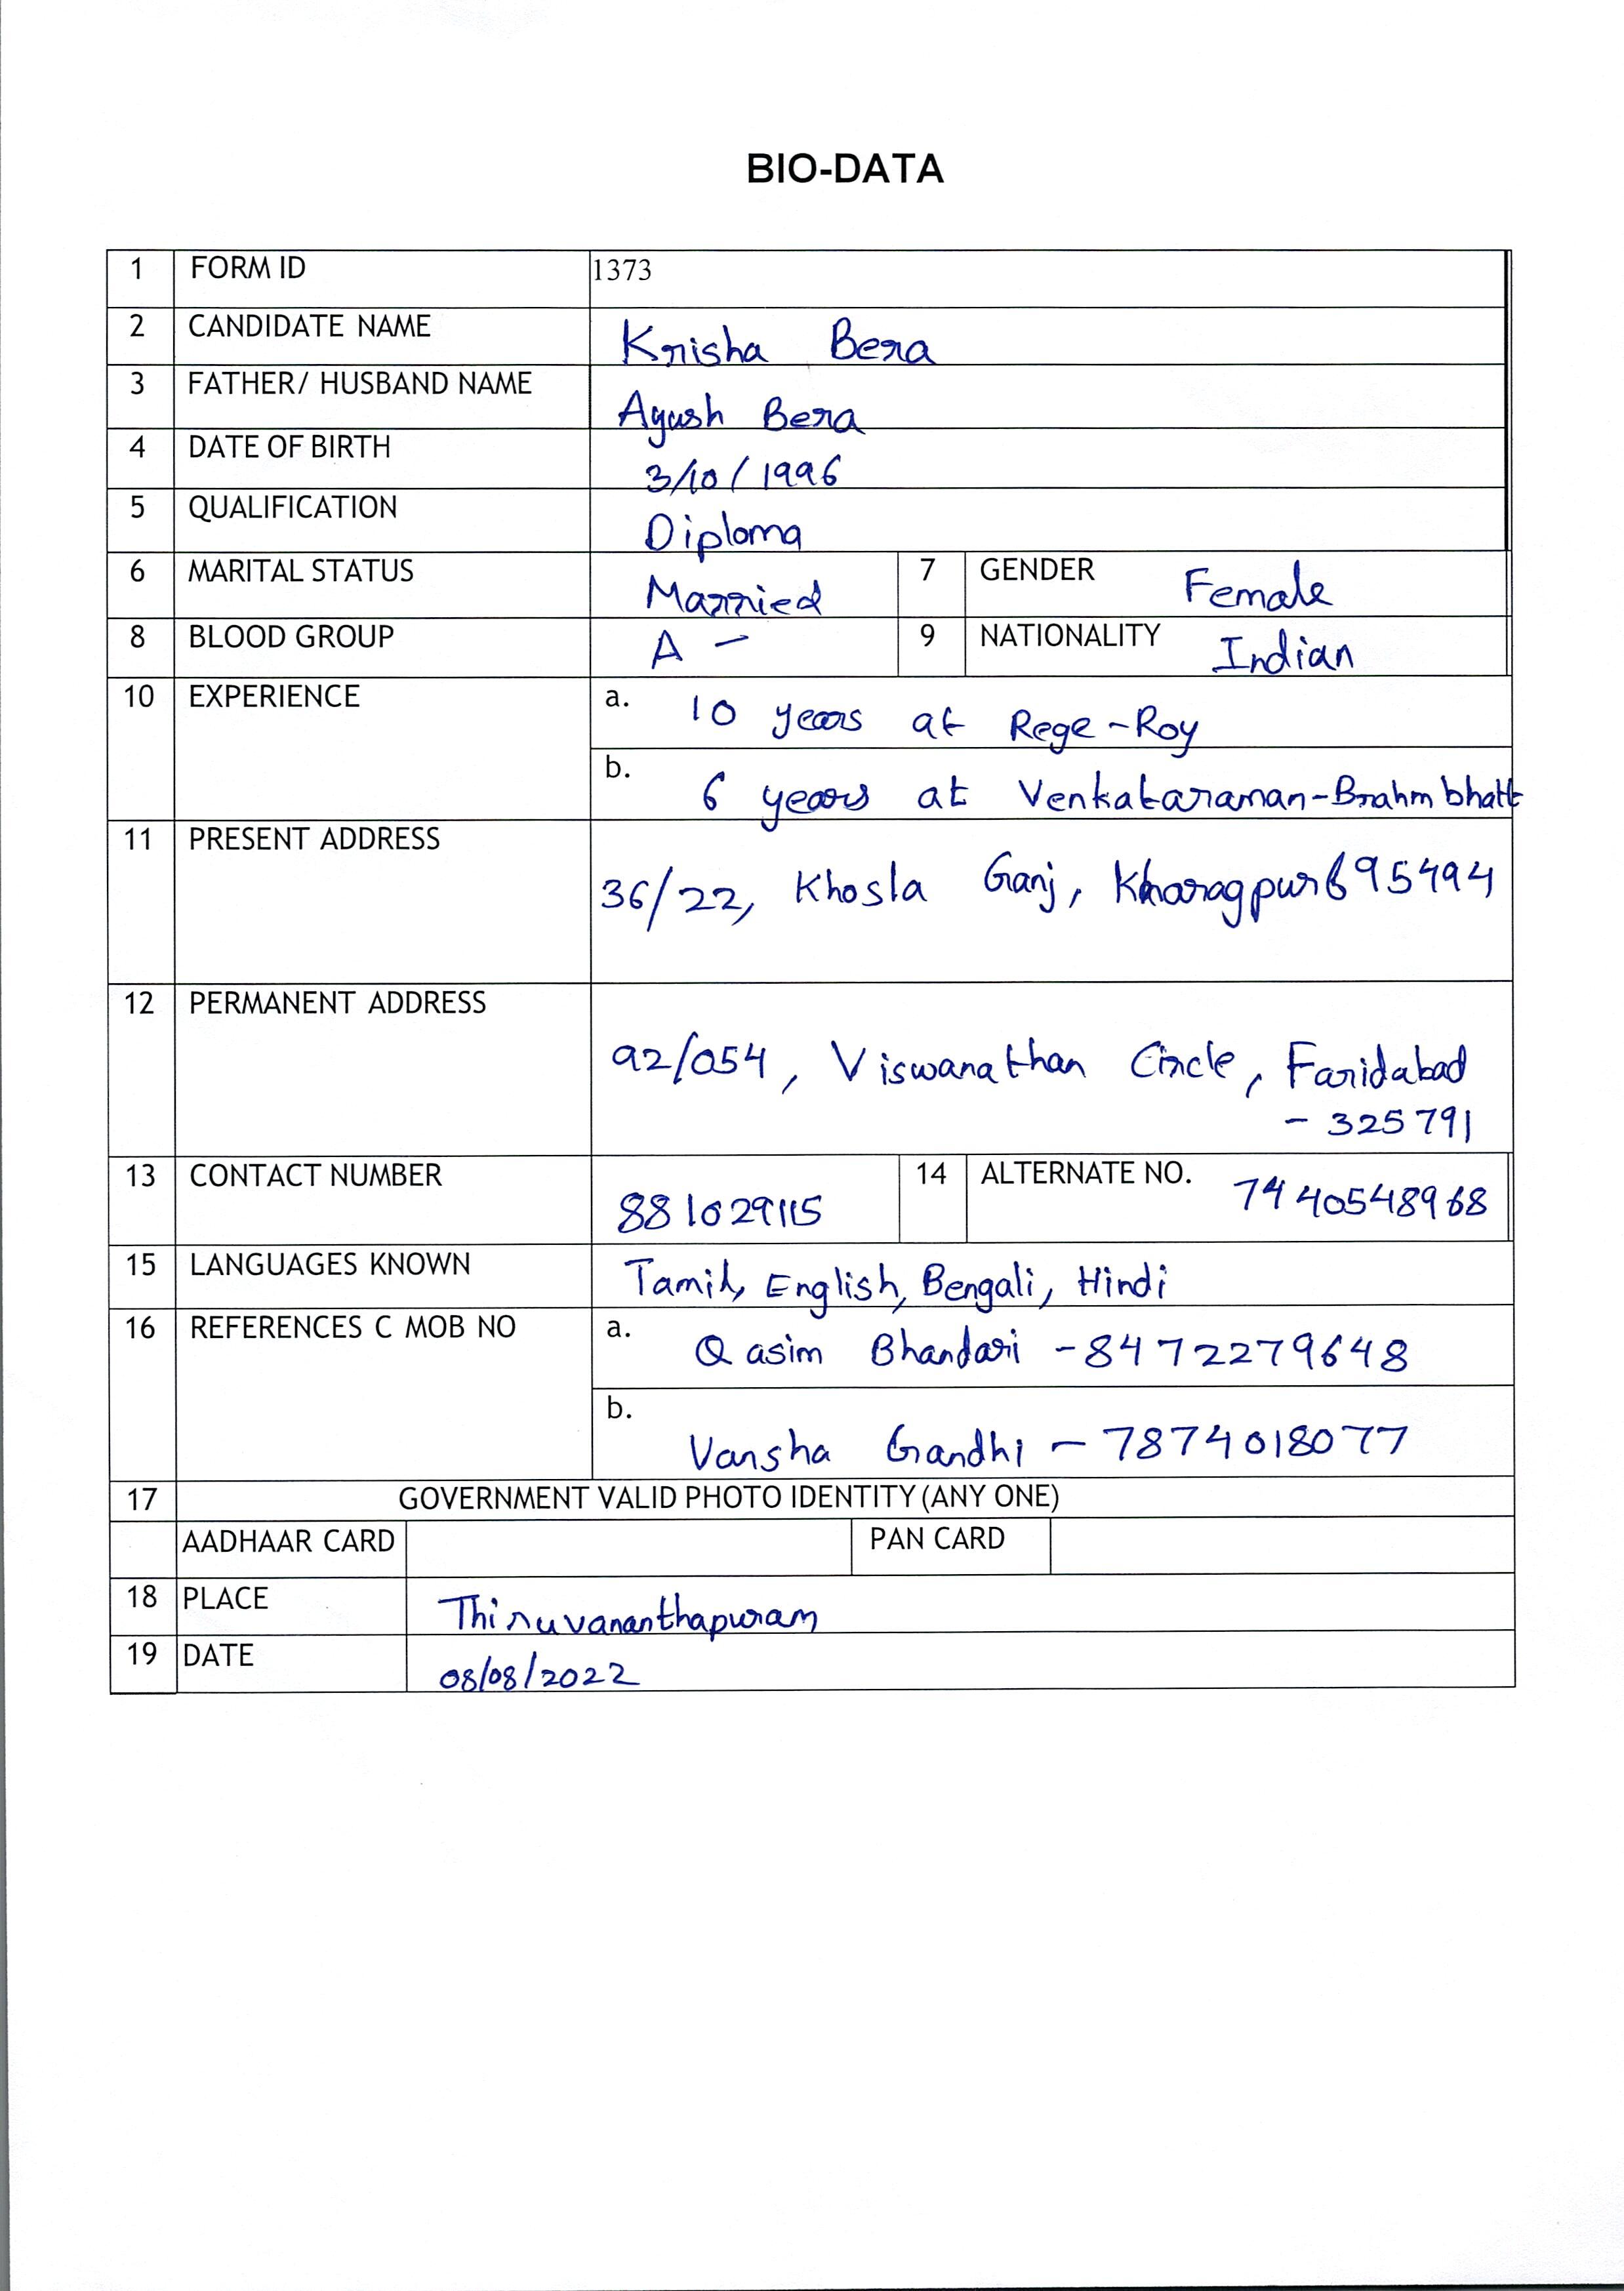 BIO-DATA
1 FORM ID 1373
2 CANDIDATE NAME Krisha Bera
3 FATHER/ HUSBAND NAME Ayush Bera
4 DATE OF BIRTH 3/10/1996
5 QUALIFICATION Diploma
6 MARITAL STATUS Married 7 GENDER Female
8 BLOOD GROUP A - 9 NATIONALITY Indian
10 EXPERIENCE a. 10 years at Rege-Roy
b. 6 years at Venkataraman-Brahmbhatt
11 PRESENT ADDRESS
36/22, Khosla Ganj, Kharagpur 695494
12 PERMANENT ADDRESS
92/054, Viswanathan Circle, Faridabad
- 325791
13 CONTACT NUMBER 881029115 14 ALTERNATE NO. 7440548968
15 LANGUAGES KNOWN Tamil, English, Bengali, Hindi
16 REFERENCES C MOB NO a. Qasim Bhandari - 8472279648
b. Varsha Gandhi - 7874018077
17 GOVERNMENT VALID PHOTO IDENTITY (ANY ONE)
AADHAAR CARD PAN CARD
18 PLACE Thiruvananthapuram
19 DATE 08/08/2022